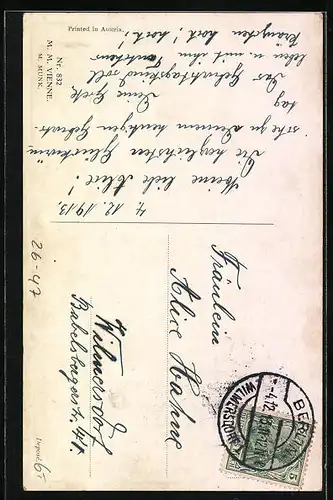 Printed in Austria.
Nr. 832
M. M. VIENNE.
M. MUNK.
4. 12. 1913.
Meine liebe Alice!
Die herzlichsten Glückwünsche
zu Deinem heutigen Geburtstag
Deine Grete
Das Geburtstagskind soll
leben u. mit ihm
Kränzchen hoch! hoch!
Fräulein
Alice Hahne
Wilmersdorf
Babelsbergerstr. 47.
BERLIN
WILMERSDORF
4.12.13
5
26-47